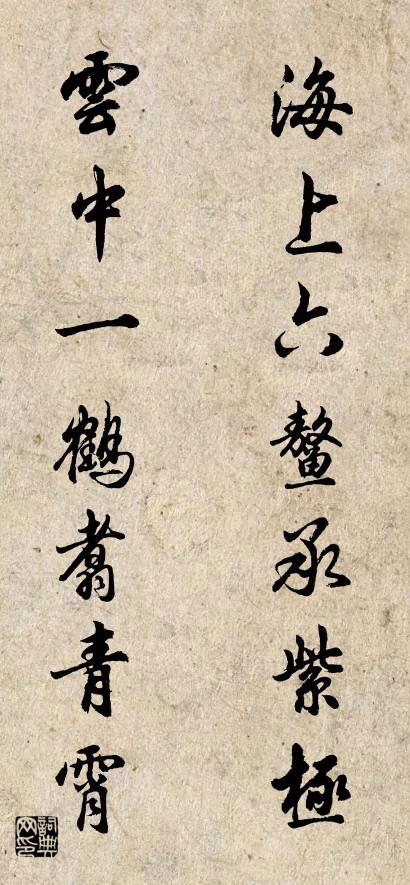 海上六鳌承紫極
雲中一鶴翥青霄
詞典網印